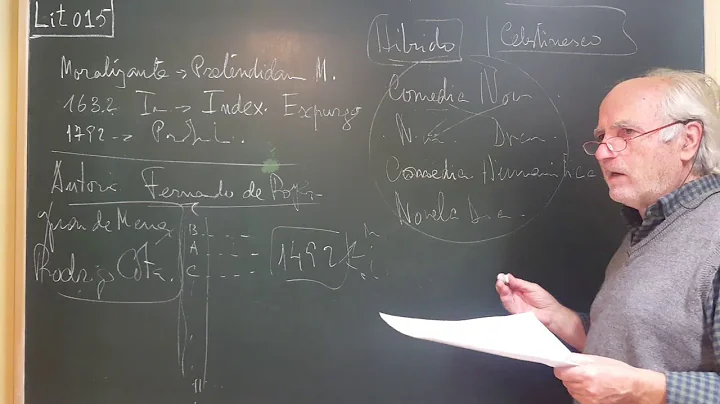 Lit 015
Moralizante → Preténdidam M.
1632 In → Index. Expurgo
1792 → Prohi..
Autoría Fernando de Roj
Juan de Mena
Rodrigo Cota.
B.
A
C
1492
Híbrido
Celestinesco
Comedia Nov
N. Dram.
Comedia Humanística
Novela D